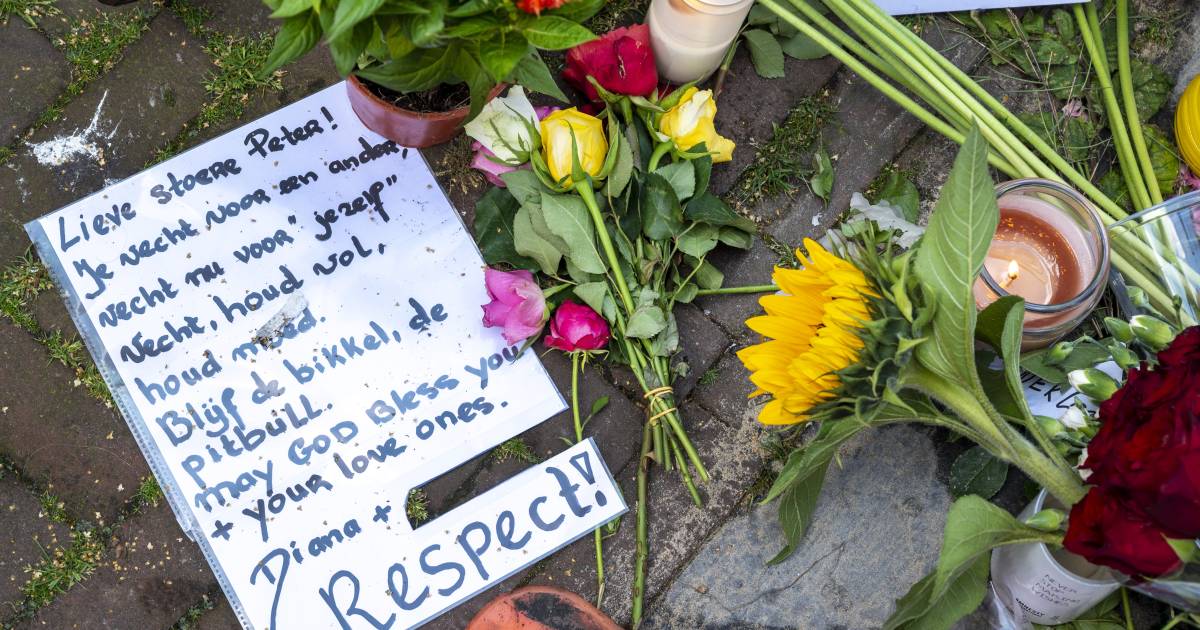 Lieve stoere Peter!
Je vecht voor een ander,
vecht nu voor "jezelf"
Vecht, houd vol,
houd moed.
Blijf de bikkel, de
pitbull.
may GOD Bless you
+ your love ones.
Diana +
Respect!
NEVER
STOP
MAKING